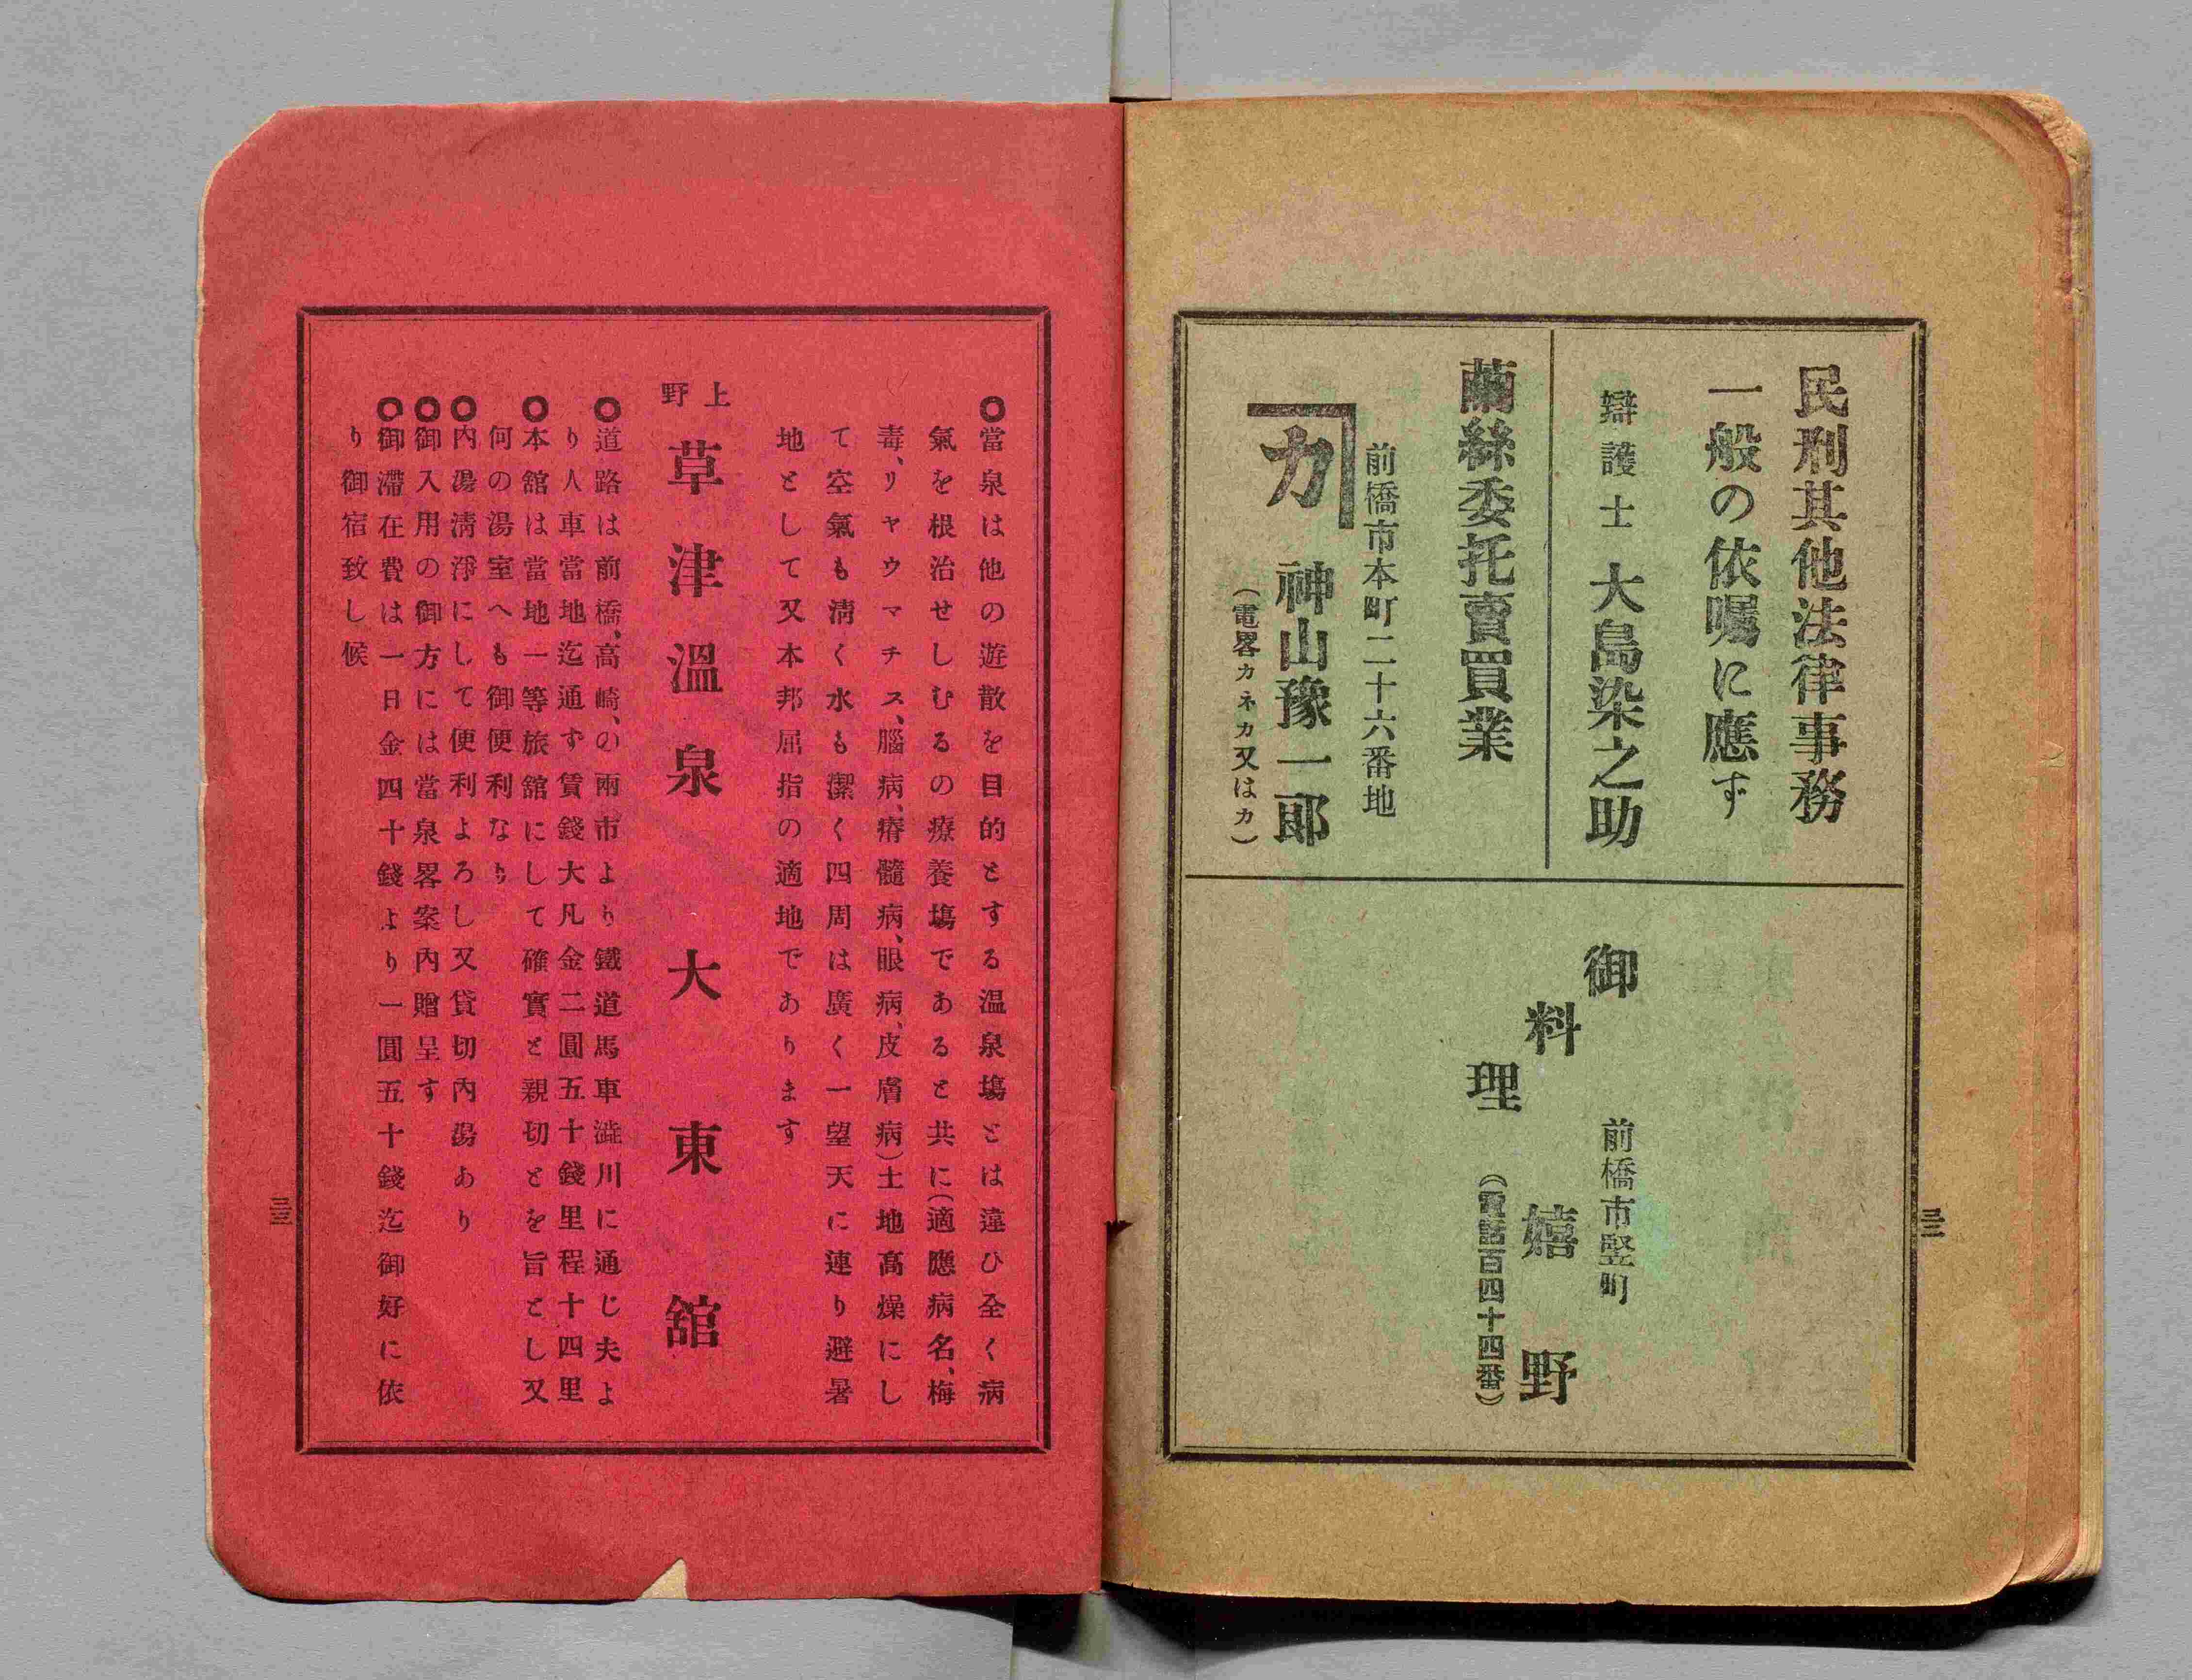 民刑其他法律事務
一般の依嘱に應ず
辯護士 大島染之助
繭絲委托賣買業
前橋市本町二十六番地
カ 神山豫一郎
(電畧カネカ又はカ)
御料理
前橋市竪町
嬉野
(電話百四十四番)
三二
◎當泉は他の遊散を目的とする温泉塲とは違ひ全く病
氣を根治せしむるの療養塲であると共に(適應病名、梅
毒、リヤウマチス、腦病、瘠髓病、眼病、皮膚病)土地高燥にし
て空氣も淸く水も潔く四周は廣く一望天に連り避暑
地として又本邦屈指の適地であります
上野
草津溫泉 大東舘
◎道路は前橋、高崎、の兩市より鐵道馬車澁川に通じ夫よ
り人車當地迄通ず賃錢大凡金二圓五十錢里程十四里
◎本舘は當地一等旅舘にして確實と親切とを旨とし又
何の湯室へも御便利なり
◎內湯淸淨にして便利よろし又貸切內湯あり
◎御入用の御方には當泉畧案內贈呈す
◎御滯在費は一日金四十錢より一圓五十錢迄御好に依
り御宿致し候
三三